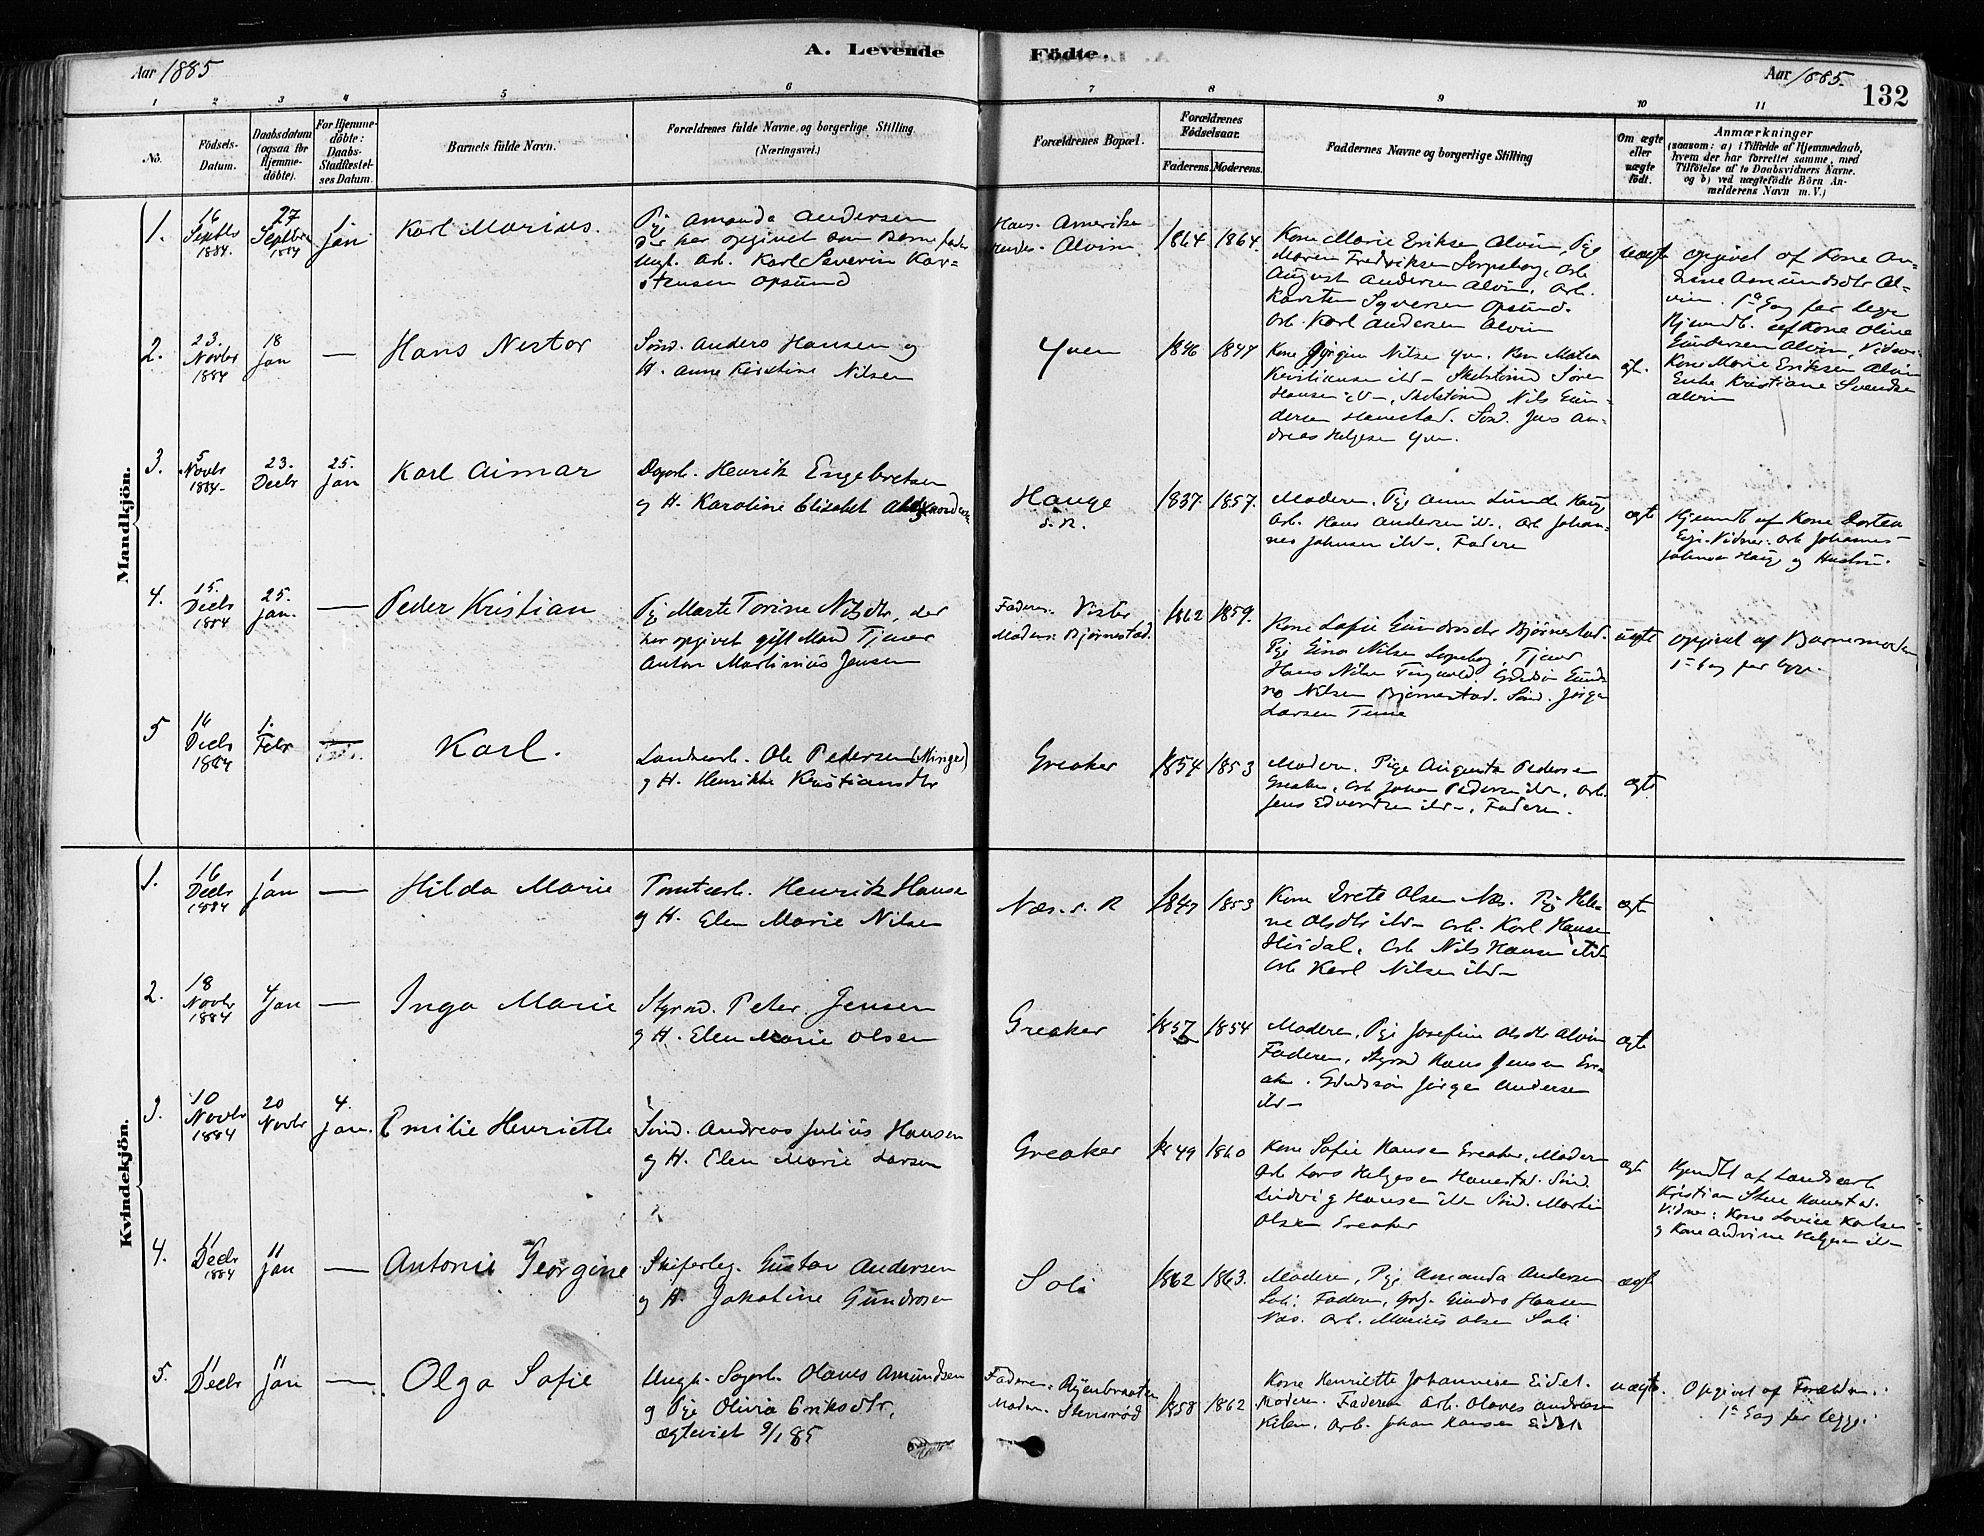 A. Levende Födte.
Aar 1885
Aar 1885.
132
1 2 3 4 5 6 7 8 9 10 11
No.
Födsels-
Datum.
Daabsdatum
(ogsaa for
Hjemme-
döbte).
For Hjemme-
döbte:
Daabs-
Stadfæstel-
ses Datum.
Barnets fulde Navn.
Forældrenes fulde Navne, og borgerlige Stilling
(Næringsvei.)
Forældrenes Bopæl.
Forældrenes
Födselsaar.
Faderens. Moderens.
Faddernes Navne og borgerlige Stilling
Om ægte
eller
uægte
födt.
Anmærkninger
(saasom: a) i Tilfælde af Hjemmedaab,
hvem der har forrettet samme, med
Tilföielse af to Daabsvidners Navne,
og b) ved uægtefödte Börn An-
melderens Navn m. V.)
Mandkjön.
1.
16
Septbr
1884.
27
Septbr
1884
1
Jan
Karl Marius.
Pj. Amanda Andersen
der har opgivet som Barnefader
Ungk. Arb. Karl Severin Kar-
stensen Opsund
Hans- Amerika
Alvim
1864 1864.
Kone Marie Eriksen Alvim, Pige
Maren Fredriksen Sarpsborg, Arb
August Andersen Alvim, Arb.
Karsten Syversen Opsund.
Arb. Karl Andersen Alvim
uægt
opgivet af Kone An-
drine Amundsdtr Al-
vim. 1ste Gang før Legg
Hjemdb. af Kone Oline
Gundersen Alvim, Vidner
Kone Marie Eriksen Alvim
Enke Kristiane Svendsen
Alvim
2.
23.
Novbr
1884
18
Jan
—
Hans Nestor
Sømd. Anders Hansen og
H. Anne Kirstine Nilsen
Yven
1846 1847
Kone Jørgine Nilsen Yven. Kone Matea
Kristiansen ibd- Skibstømd Søren
Hansen ibd-, Skibstømd Nils Gun-
dersen Hannestad. Sømd. Jens An-
dreas Helgesen Yven.
ægt.
3.
5
Novbr
1884.
23.
Decbr
25.
Jan
Karl Aimar
Dagarb. Henrik Engebretsen
og H. Karoline Elisabet Alexandersen
Hauge
s. R.
1837. 1857.
Moderen, Pige Anna Lunde Haug
Arb. Hans Andersen ibd., Arb Johan-
nes Johnsen ibd-, Faderen
ægte
Hjemdt af Kone Dortea
Vidner: Arb Johannes
Johnsen Haug og Hustru.
4.
15.
Decbr
1884
25.
Jan.
—
Peder Kristian
Pj Marte Torine Nilsdtr, der
har opgivet gift Mand Tjener
Anton Martinius Jensen
Faderen- Vister
Moderen: Bjørnestad.
1862 1859.
Kone Sofie Gundersdtr Bjørnestad.
Pige Gina Nilsen Sarpsborg, Tjener
Hans Nilsen
Nilsen Bjørnestad. Sømd. Jørgen
Larsen Tune
uægte
opgivet af Barnemoderen
1ste Gang før Legg.
5
16
Decbr
1884
1.
Febr
—
Karl.
Landarb. Ole Pedersen (Minge)
og H. Henrikke Kristiansdtr
Greaker
1854 1853
Moderen, Pige Augusta Pedersen
Greaker, Arb Johan Pedersen ibd-, Arb.
Jens Edvardsen ibd-, Faderen.
ægte
Kvindekjön.
1.
16
Decbr
1884
1
Jan
—
Hilda Marie
Tomtarb. Henrik Hansen
og H. Elen Marie Nilsen
Næs. s. R
1847 1853
Kone Grete Olsen Næs. Pige Hele-
ne Olsdtr ibd- Arb. Karl Hansen
Hisdal. Arb Nils Hansen ibd-
Arb Karl Nilsen ibd-
ægte
2.
18
Novbr
1884
4
Jan
—
Inga Marie
Styrmd. Peter Jensen
og H. Elen Marie Olsen
Greaker
1857 1854
Moderen, Pige Josefine Olsdtr Alvim
Faderen, Styrmd Hans Jensen Gre-
aker. Gaardssøn Jørgen Andersen
ibd-
ægte
3.
10
Novbr
1884
20
Novbr
4.
Jan.
Emilie Henriette
Sømd. Andreas Julius Hansen
og H. Elen Marie Larsen
Greaker
1849 1860
Kone Sofie Hansen Greaker, Moderen
Arb Lars Helgesen Hannestad. Sømd.
Ludvig Hansen ibd. Sømd. Martin
Olsen Greaker
ægt
Hjemdt af Landarb
Kristian Hannestad.
Vidner: Kone Lovise Karlsen
og Kone Andrine Helgesen ibd-
4.
11
Decbr
1884
11
Jan
—
Antonie Georgine
Skiferlæg. Gustav Andersen
og H. Jakobine Gundersen
Soli
1862 1863.
Moderen, Pige Amanda Andersen
Soli. Faderen, Hansen
Næs. Arb. Marius Olsen Soli
ægt
5.
11
Decbr
11
Jan
—
Olga Sofie
Ungk. Sagarb. Olaves Amundsen
og Pige Olivia Eriksdtr,
ægteviet 9/1 85
Faderen: Røienbraaten
Moderen- Stensrød
1858 1862
Kone Henriette Johannesen Eidet.
Moderen. Faderen Arb. Olaves Andreasen
Kilen, Arb. Johan Hansen Eidet
uægte.
Opgivet af Forældrene.
1ste Gang før Legg.